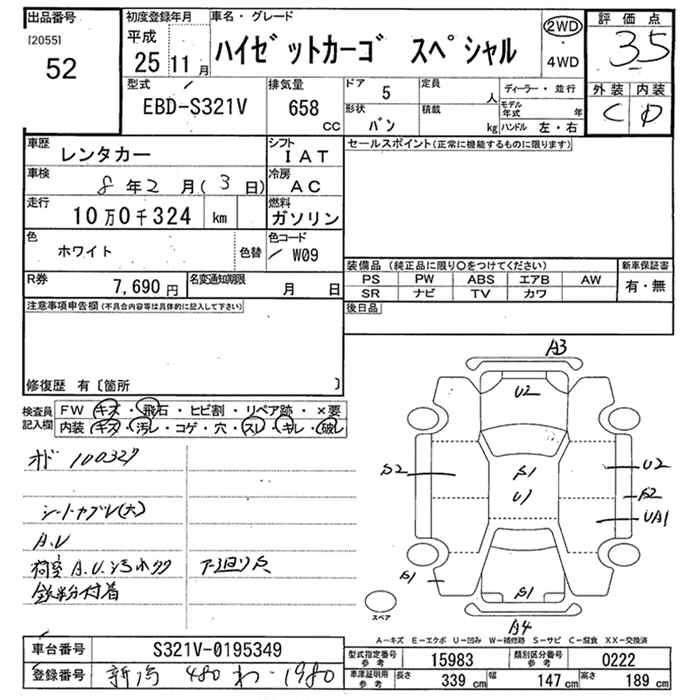 出品番号
[2055]
52
初度登録年月
平成
25 11月
車名・グレード
ハイゼットカーゴ スペシャル
2WD
・
4WD
評価点
3.5
外装 内装
C D
型式
EBD-S321V
排気量
658
CC
ドア 5
形状
バン
定員
人
積載
kg
ディーラー・並行
モデル年式 年
ハンドル 左・右
車歴
レンタカー
シフト
IAT
車検
8年2月(3日)
冷房
AC
走行
10万0千324 km
燃料
ガソリン
色
ホワイト
色替
色コード
W09
R券
7,690円
名変通知期限
月 日
セールスポイント(正常に機能するものに限ります)
装備品 (純正品に限り○をつけてください)
PS PW ABS エアB AW
SR ナビ TV カワ
新車保証書
有・無
後日品
注意事項申告欄(不具合内容等は具体的に記入して下さい)
修復歴 有〔箇所 〕
検査員記入欄
FW キズ・飛石・ヒビ割・リペア跡・×要
内装 キズ・汚レ・コゲ・穴・スレ・キレ・破レ
オド 100327
シートヤブレ(大)
A.U
荷室A.U.汚れ
下廻りS
鉄粉付着
A3
U2
S2
S1
U1
U2
S2
UA1
S1
S1
A4
スペア
A-キズ E-エクボ U-凹み W-補修跡 S-サビ C-腐食 XX-交換済
車台番号
S321V-0195349
登録番号
新潟 480 わ・1980
型式指定番号
参考
15983
類別区分番号
参考
0222
車庫証明用
参考
長さ 339 cm
幅 147 cm
高さ 189 cm